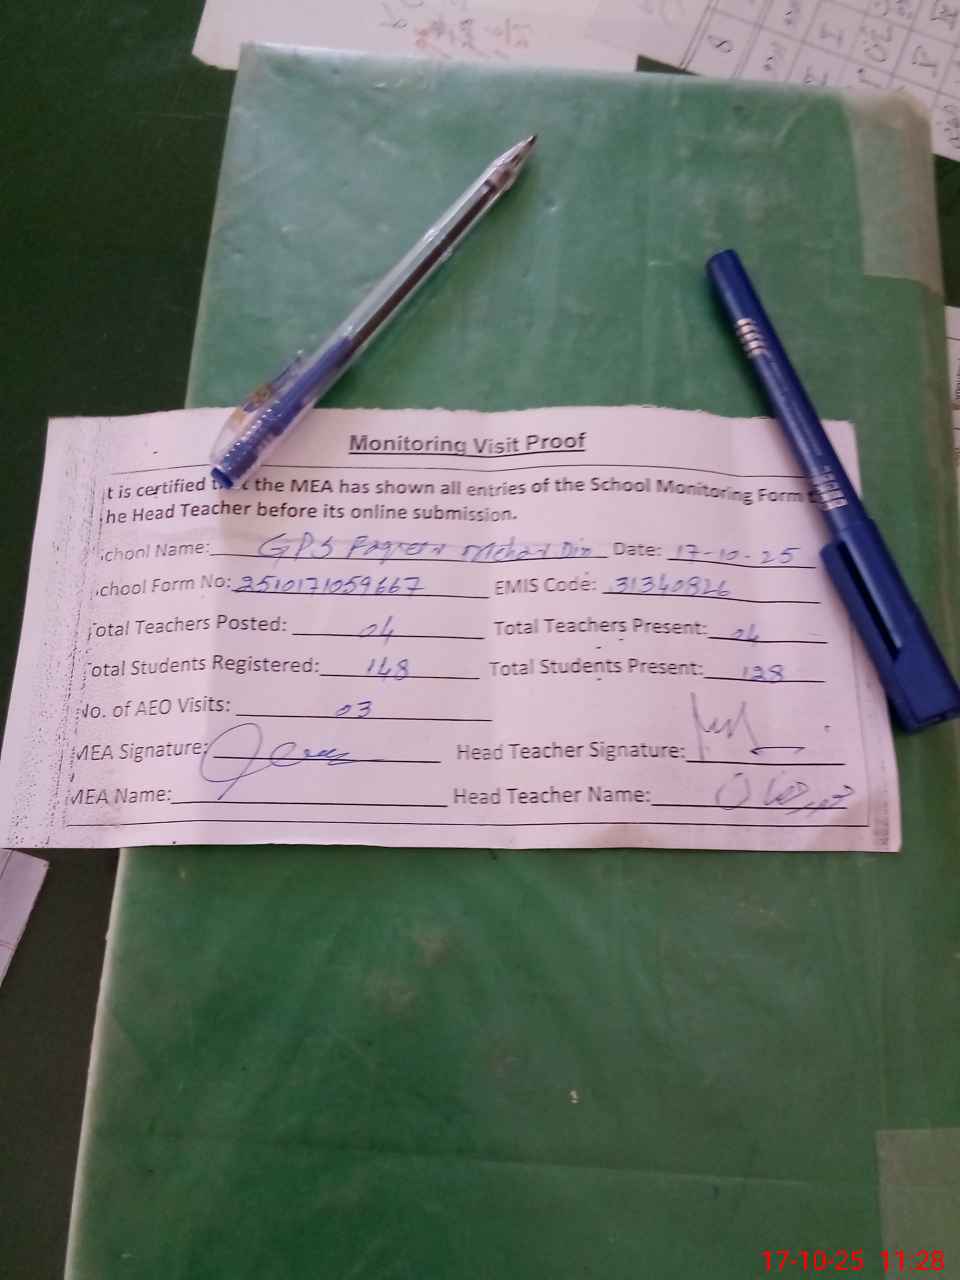 Monitoring Visit Proof
t is certified the MEA has shown all entries of the School Monitoring Form
he Head Teacher before its online submission.
chool Name: GPS Din Date: 17-10-25
chool Form No: 2510171059667 EMIS Code: 31340826
Total Teachers Posted: 04 Total Teachers Present: 04
Total Students Registered: 148 Total Students Present: 128
No. of AEO Visits: 03
MEA Signature: Head Teacher Signature:
MEA Name: Head Teacher Name:
17-10-25 11:28